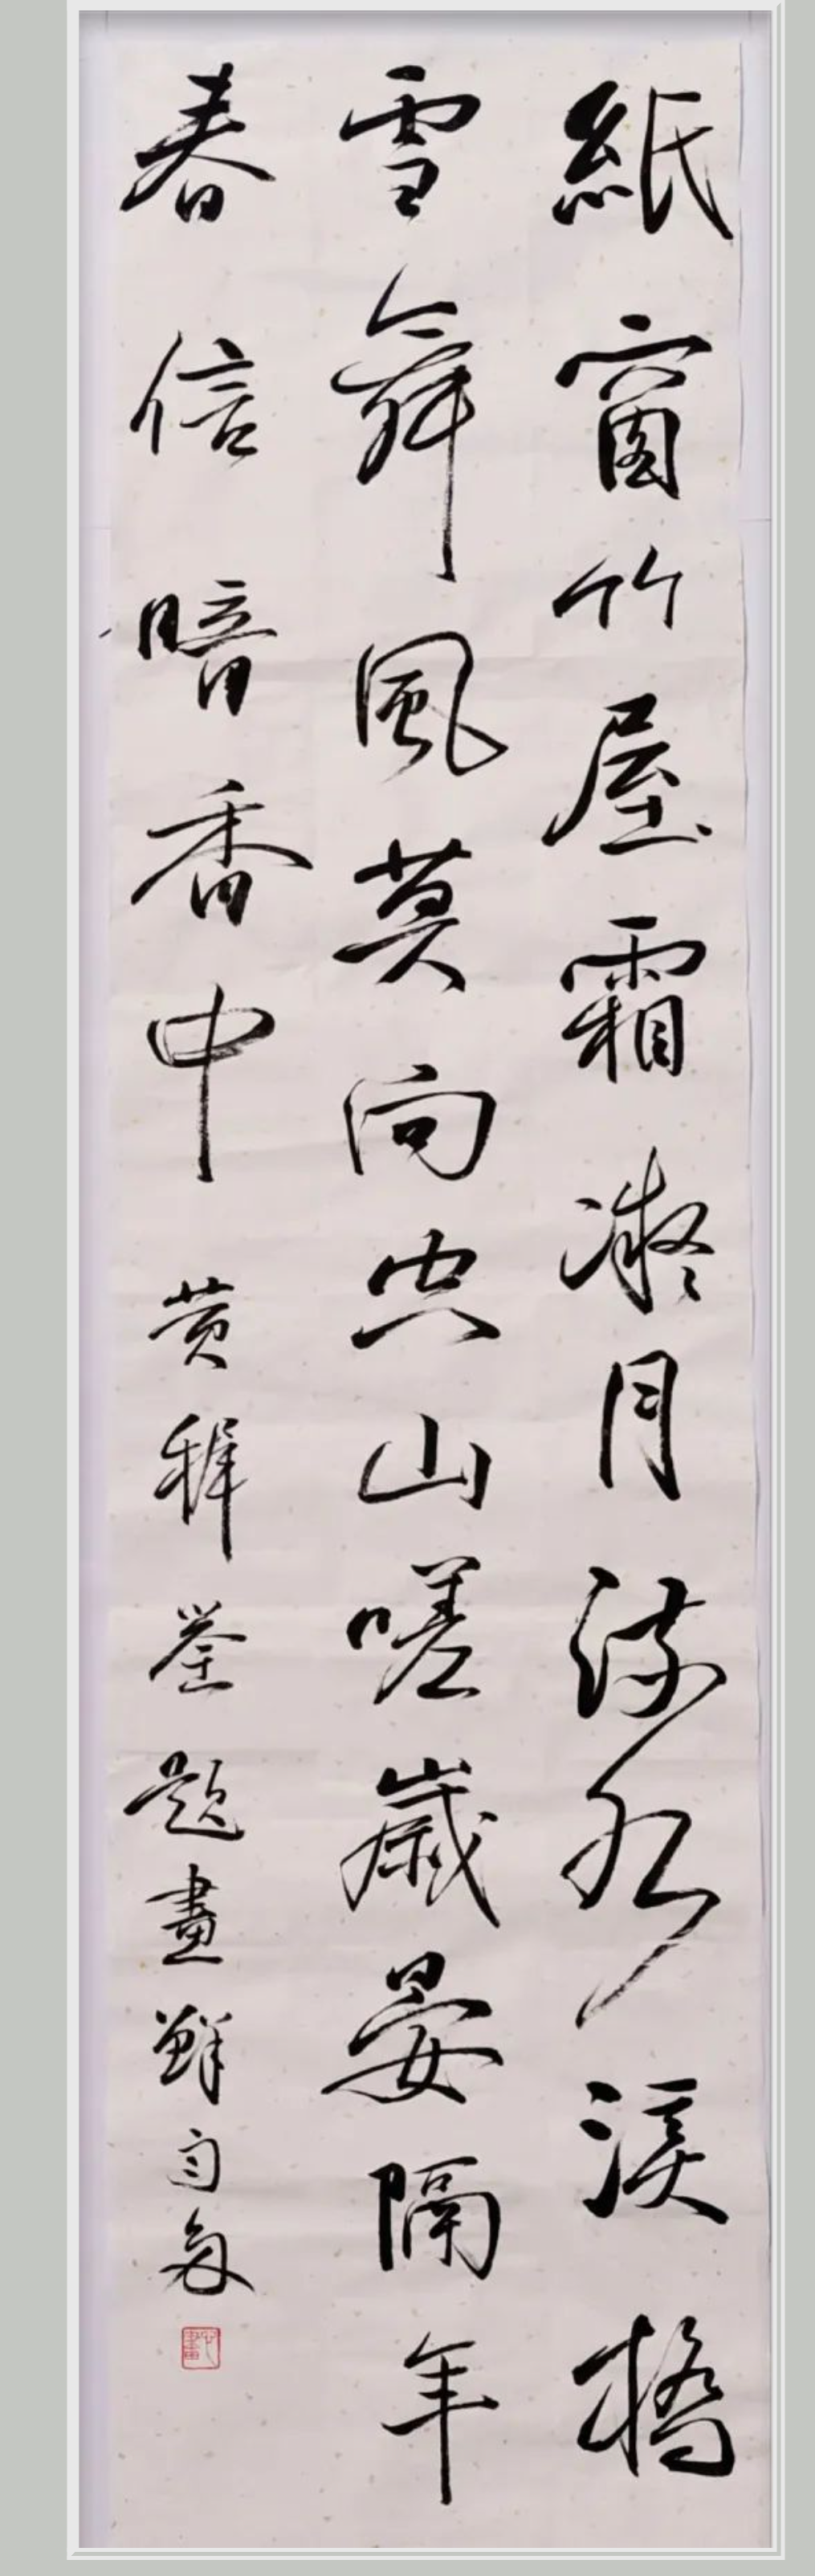 紙窗竹屋霜凝月流水溪橋
雪舞風莫向空山嗟歲晏隔年
春信暗香中 黄稺荃題畫鲜于